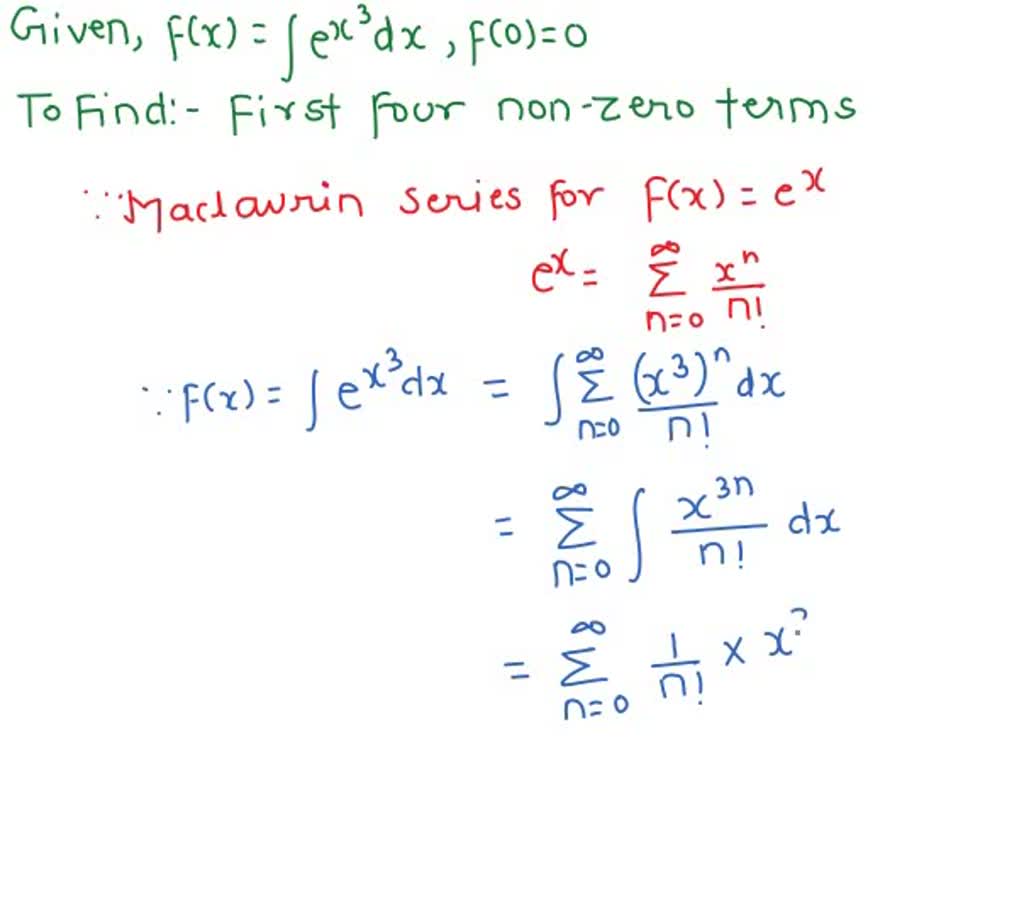 Given, F(x) = ∫ e^{x^3} dx , F(0) = 0
To Find:- First four non-zero terms
∵ Maclaurin series for F(x) = e^x
e^x = ∑_{n=0}^{∞} x^n / n!
∵ F(x) = ∫ e^{x^3} dx = ∫ ∑_{n=0}^{∞} (x^3)^n / n! dx
= ∑_{n=0}^{∞} ∫ x^{3n} / n! dx
= ∑_{n=0}^{∞} 1/n! × x